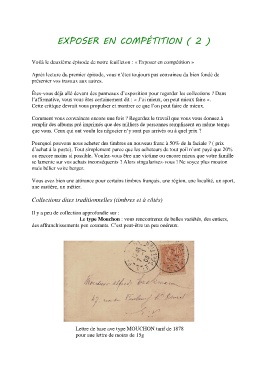 EXPOSER EN COMPÉTITION ( 2 )
Voilà le deuxième épisode de notre feuilleton : « Exposer en compétition »
Après lecture du premier épisode, vous n'êtes toujours pas convaincu du bien fondé de
présenter vos travaux aux autres.
Êtes-vous déjà allé devant des panneaux d'exposition pour regarder les collections ? Dans
l'affirmative, vous vous êtes certainement dit : « J'ai mieux, on peut mieux faire ».
Cette critique devrait vous propulser et montrer ce que l'on peut faire de mieux.
Comment vous convaincre encore une fois ? Regardez le travail que vous vous donnez à
remplir des albums pré imprimés que des milliers de personnes remplissent en même temps
que vous. Ceux qui ont voulu les négocier n'y sont pas arrivés ou à quel prix ?
Pourquoi pouvons nous acheter des timbres en nouveau franc à 50% de la faciale ? ( prix
d'achat à la poste). Tout simplement parce que les acheteurs de tout poil n'ont payé que 20%
ou encore moins si possible. Voulez-vous être une victime ou encore mieux que votre famille
se lamente sur vos achats inconséquents ? Alors singularisez-vous ! Ne soyez plus mouton
mais bélier voire berger.
Vous avez bien une attirance pour certains timbres français, une région, une localité, un sport,
une matière, un métier.
Collections dites traditionnelles (timbres et à côtés)
Il y a peu de collection approfondie sur :
Le type Mouchon : vous rencontrerez de belles variétés, des entiers,
des affranchissements peu courants. C'est peut-être un peu onéreux.
Lettre de base avec type MOUCHON tarif de 1878
pour une lettre de moins de 15g